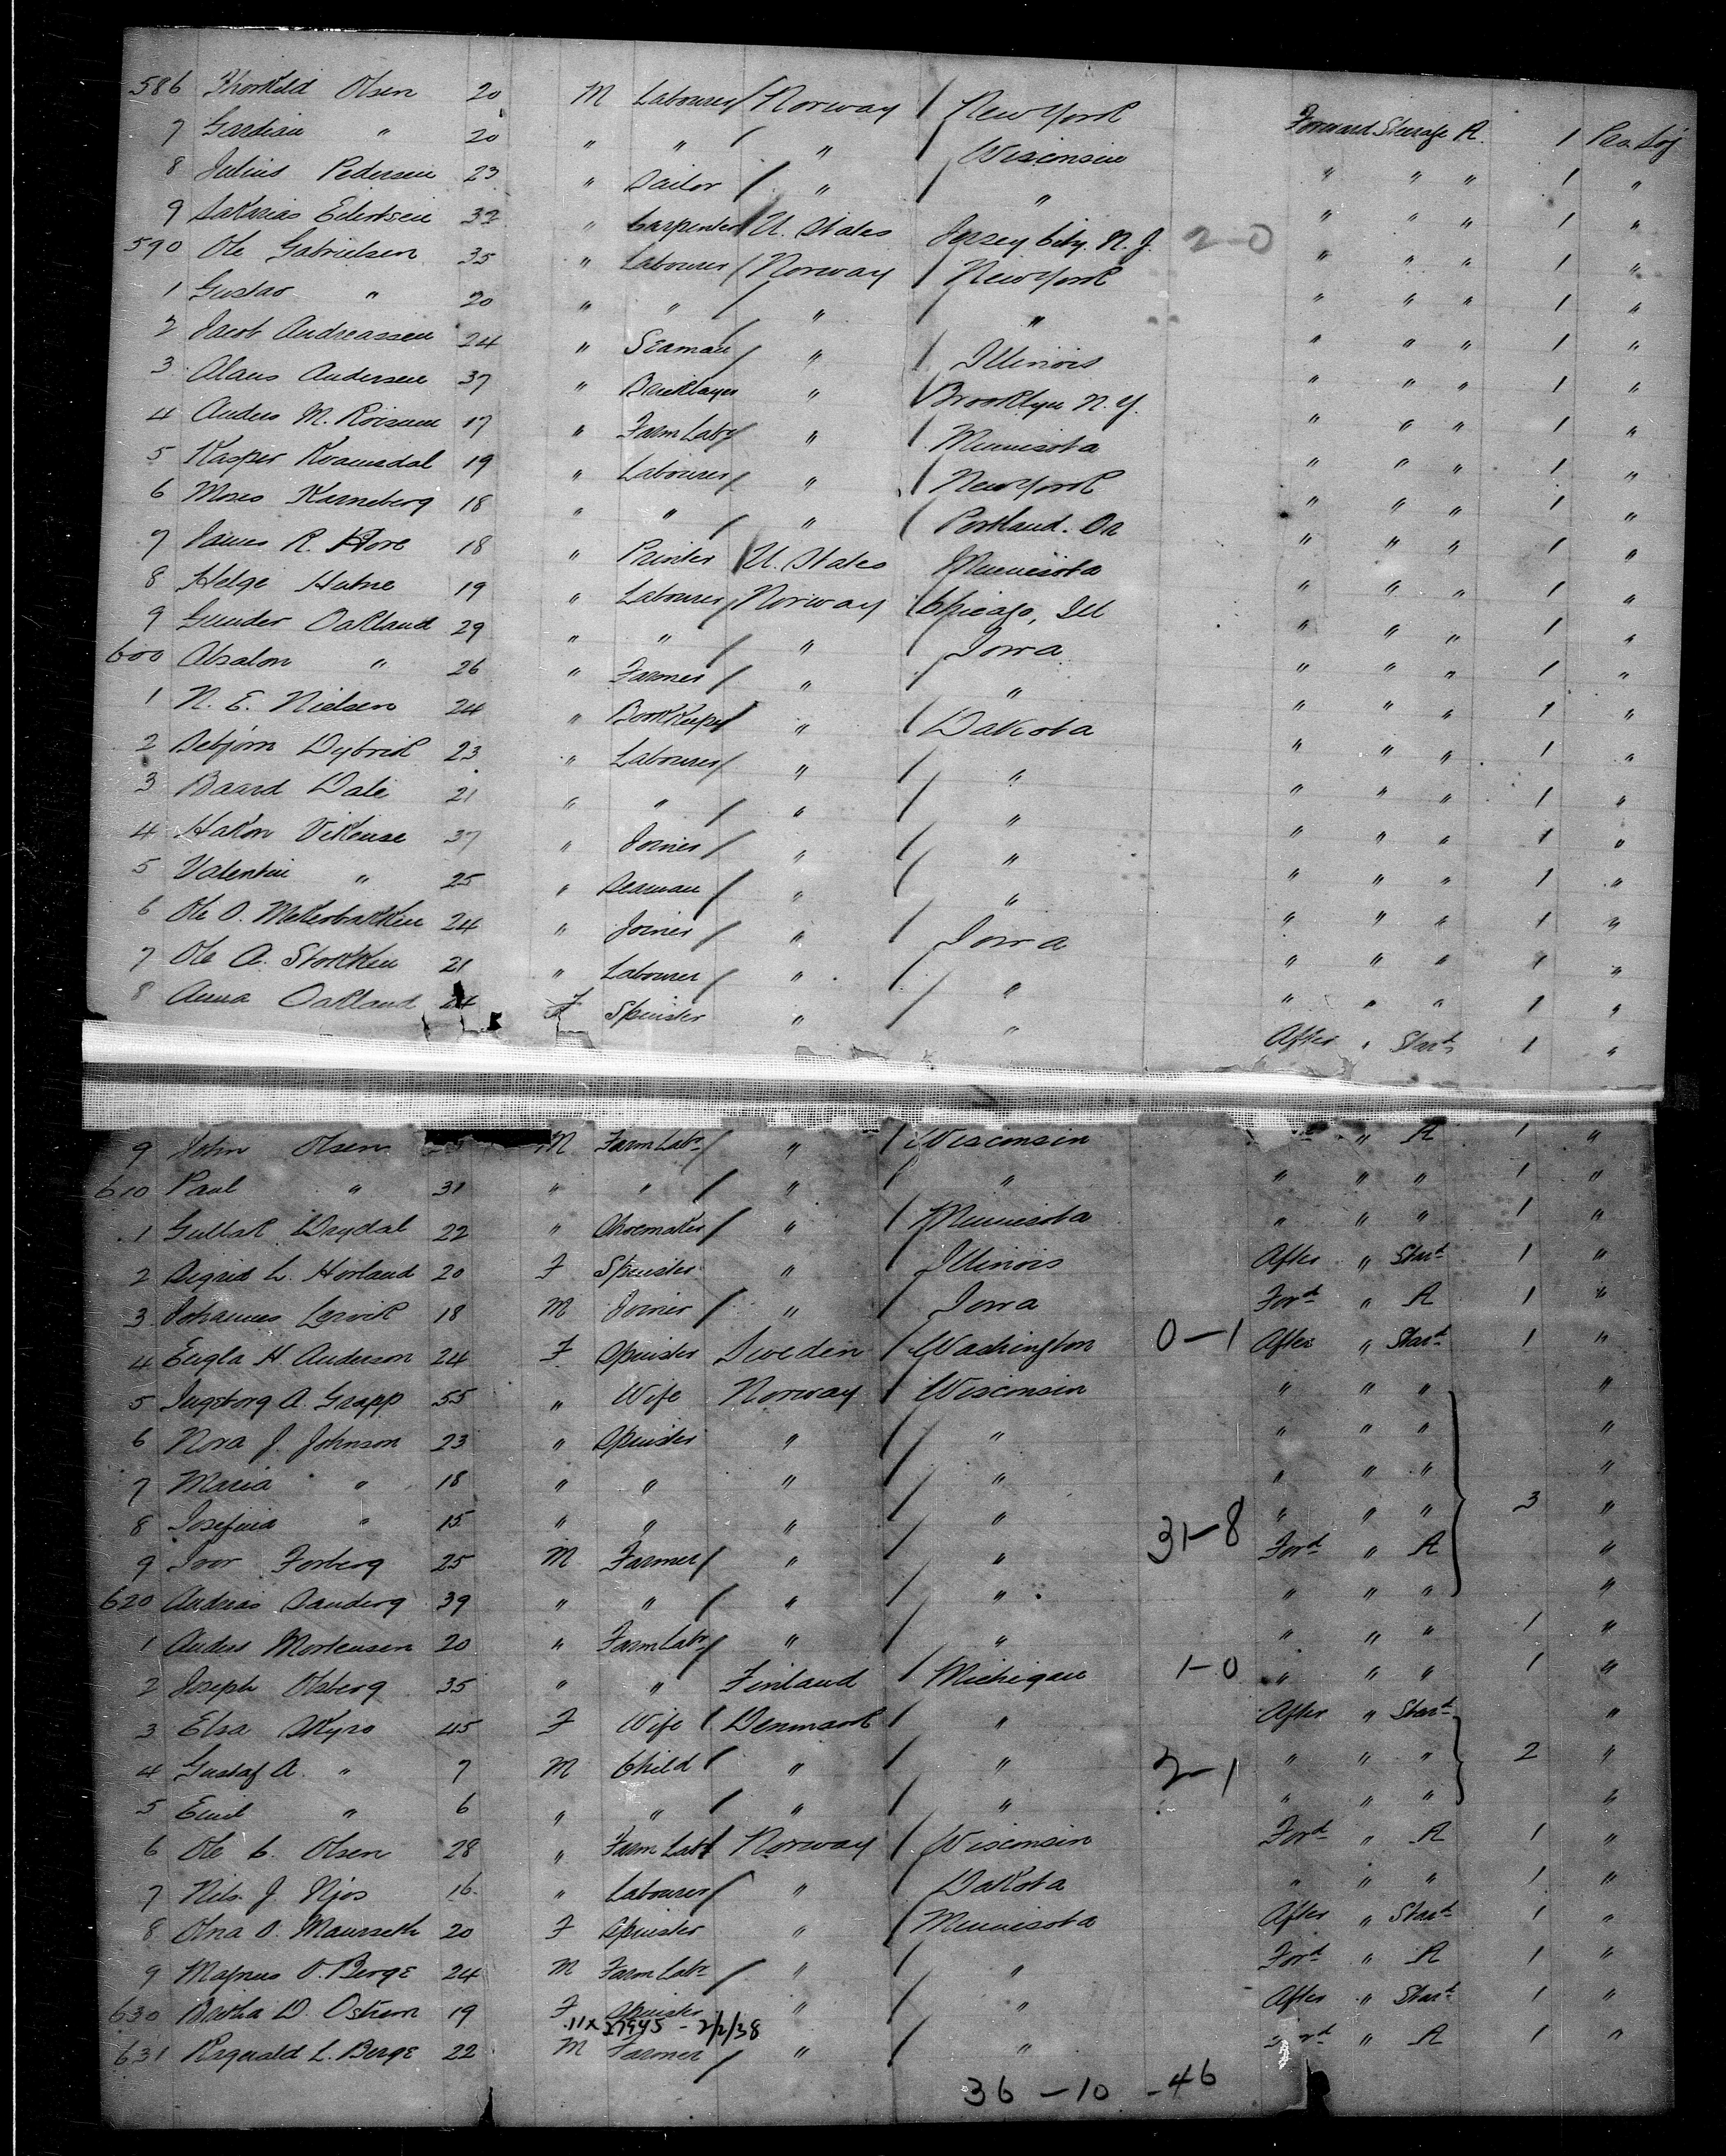 586 Thorkild Olsen 20 M Labourer / Norway / New York Forward Steerage A. 1 Pro. Soj
7 Gardian " 20 " " / " / Wisconsin " " " 1 "
8 Julius Pedersen 23 " Sailor / " / " " " " 1 "
9 Sakarias Eilertsen 32 " Carpenter / U. States Jersey City. N. J. 2-0 " " " 1 "
590 Ole Gabrielsen 35 " Labourer / Norway / New York " " " 1 "
1 Gustav " 20 " " / " " " " " 1 "
2 Jacob Andreassen 24 " Seaman / " / Illinois " " " 1 "
3 Alaus Andersen 37 " Bricklayer " / Brooklyn N. Y. " " " 1 "
4 Anders M. Roisum 17 " Farm Labr / " / Minnesota " " " 1 "
5 Kasper Kvamsdal 19 " Labourer / " / New York " " " 1 "
6 Moses Karneberg 18 " " / " / Portland. Or " " " 1 "
7 James R. Hove 18 " Printer / U. States Minnesota " " " 1 "
8 Helge Hatne 19 " Labourer / Norway / Chicago, Ill " " " 1 "
9 Gunder Oakland 29 " " / " / Iowa " " " 1 "
600 Absalon " 26 " Farmer / " / " " " " 1 "
1 N. E. Nielsen 24 " Bookkeeper / " / Dakota " " " 1 "
2 Sebjorn Dybvik 23 " Labourer / " / " " " " 1 "
3 Baard Dale 21 " " / " / " " " " 1 "
4 Hakon Vikense 37 " Joiner / " / " " " " 1 "
5 Valentin " 25 " Seaman / " / " " " " 1 "
6 Ole O. Mekerbakken 24 " Joiner / " / Iowa " " " 1 "
7 Ole A. Stokken 21 " Labourer / " / " " " " 1 "
8 Anna Oakland 24 F Spinster " / " After " Stard 1 "
9 John Olsen M Farm Labr / " / Wisconsin " A 1 "
610 Paul " 31 " " / " / " " " " 1 "
1 Gullak Drydal 22 " Shoemaker / " / Minnesota " " " 1 "
2 Sigrid L. Horland 20 F Spinster " / Illinois After " Stard 1 "
3 Johannes Lervik 18 M Joiner / " / Iowa Ford " A 1 "
4 Engla H. Anderson 24 F Spinster Sweden / Washington 0-1 After " Stard 1 "
5 Ingeborg A. Grapp 55 " Wife Norway / Wisconsin " " " "
6 Nora J. Johnson 23 " Spinster " / " " " " "
7 Maria " 18 " " " / " " " " "
8 Josefina " 15 " " " / " 31-8 " " " 3 "
9 Ivor Forberg 25 M Farmer / " / " Ford " A "
620 Andrias Sanderg 39 " " / " / " " " " "
1 Anders Mortensen 20 " Farm Labr / " / " " " " 1 "
2 Joseph Olsberg 35 " " Finland / Michigan 1-0 " " " 1 "
3 Elsa Skyro 45 F Wife / Denmark / " After " Stard "
4 Gustaf A. " 7 M Child / " / " 2-1 " " " 2 "
5 Emil " 6 " " / " / " " " " "
6 Ole C. Olsen 28 " Farm Labr / Norway / Wisconsin Ford " A 1 "
7 Nils J Njos 16 " Labourer / " / Dakota " " " 1 "
8 Olna O. Maurseth 20 F Spinster " / Minnesota After " Stard 1 "
9 Magnus O. Berge 24 M Farm Labr / " / " Ford " A 1 "
630 Bertha D. Ostrem 19 F Spinster " / " After " Stard 1 "
11x 27945 - 2/2/38
631 Ragnvald L. Berge 22 M Farmer / " / " Ford " A 1 "
36 - 10 - 46